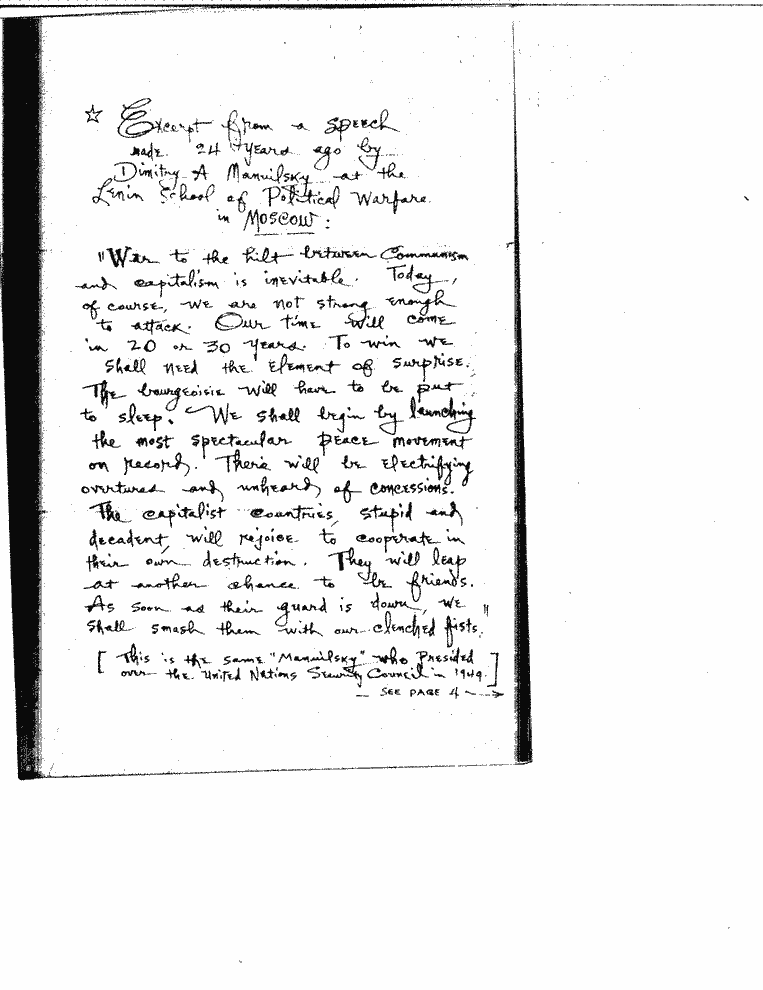 ☆ Excerpt from a speech
made 24 years ago by
Dimitry A Manuilsky at the
Lenin School of Political Warfare
in Moscow:
"War to the hilt between Communism
and capitalism is inevitable. Today,
of course, we are not strong enough
to attack. Our time will come
in 20 or 30 years. To win we
shall need the element of surprise.
The bourgeoisie will have to be put
to sleep. We shall begin by launching
the most spectacular peace movement
on record. There will be electrifying
overtures and unheard of concessions.
The capitalist countries, stupid and
decadent, will rejoice to cooperate in
their own destruction. They will leap
at another chance to be friends.
As soon as their guard is down, we
shall smash them with our clenched fists."
[This is the same "Manuilsky" who Presided
over the United Nations Security Council in 1949.]
— SEE PAGE 4 →